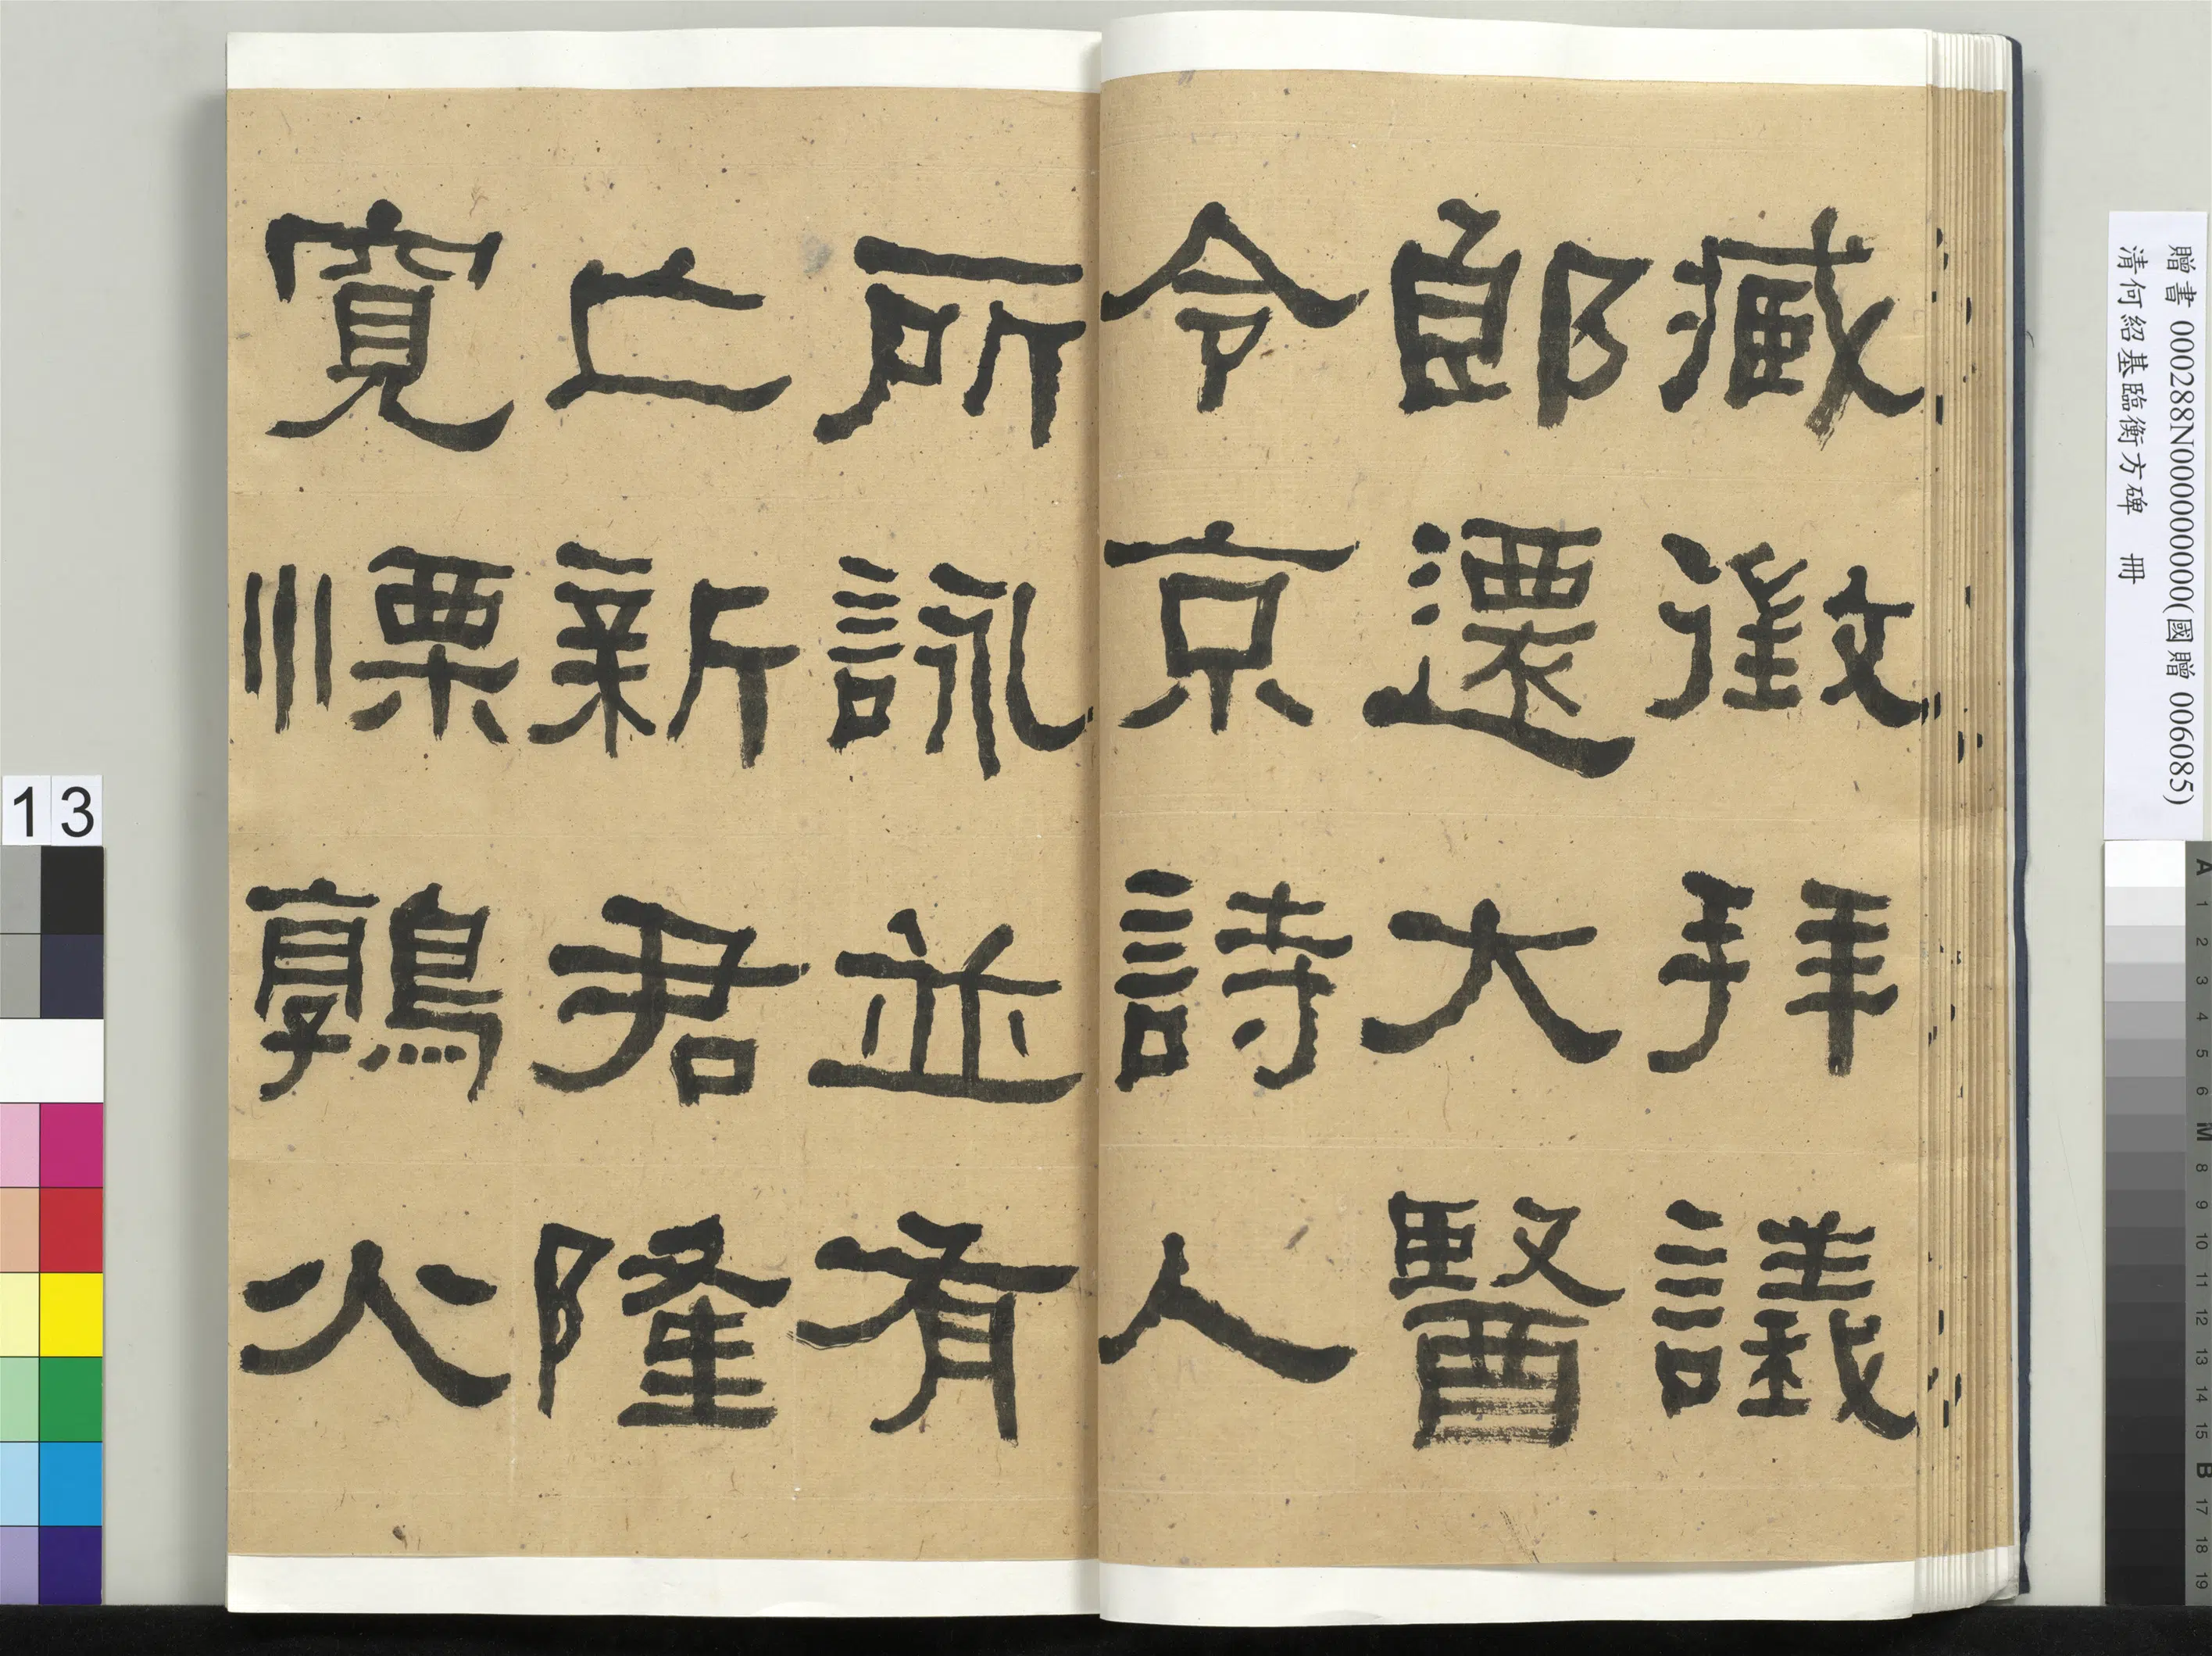 藏徵拜議
郎遷大醫
令京詩人
所詠並有
亡新君隆
寬慄鶉火
贈書 000288N000000000(國贈 006085)
清何紹基臨衡方碑 冊
13
A 1 2 3 4 5 6 M 8 9 10 11 12 13 14 15 B 17 18 19